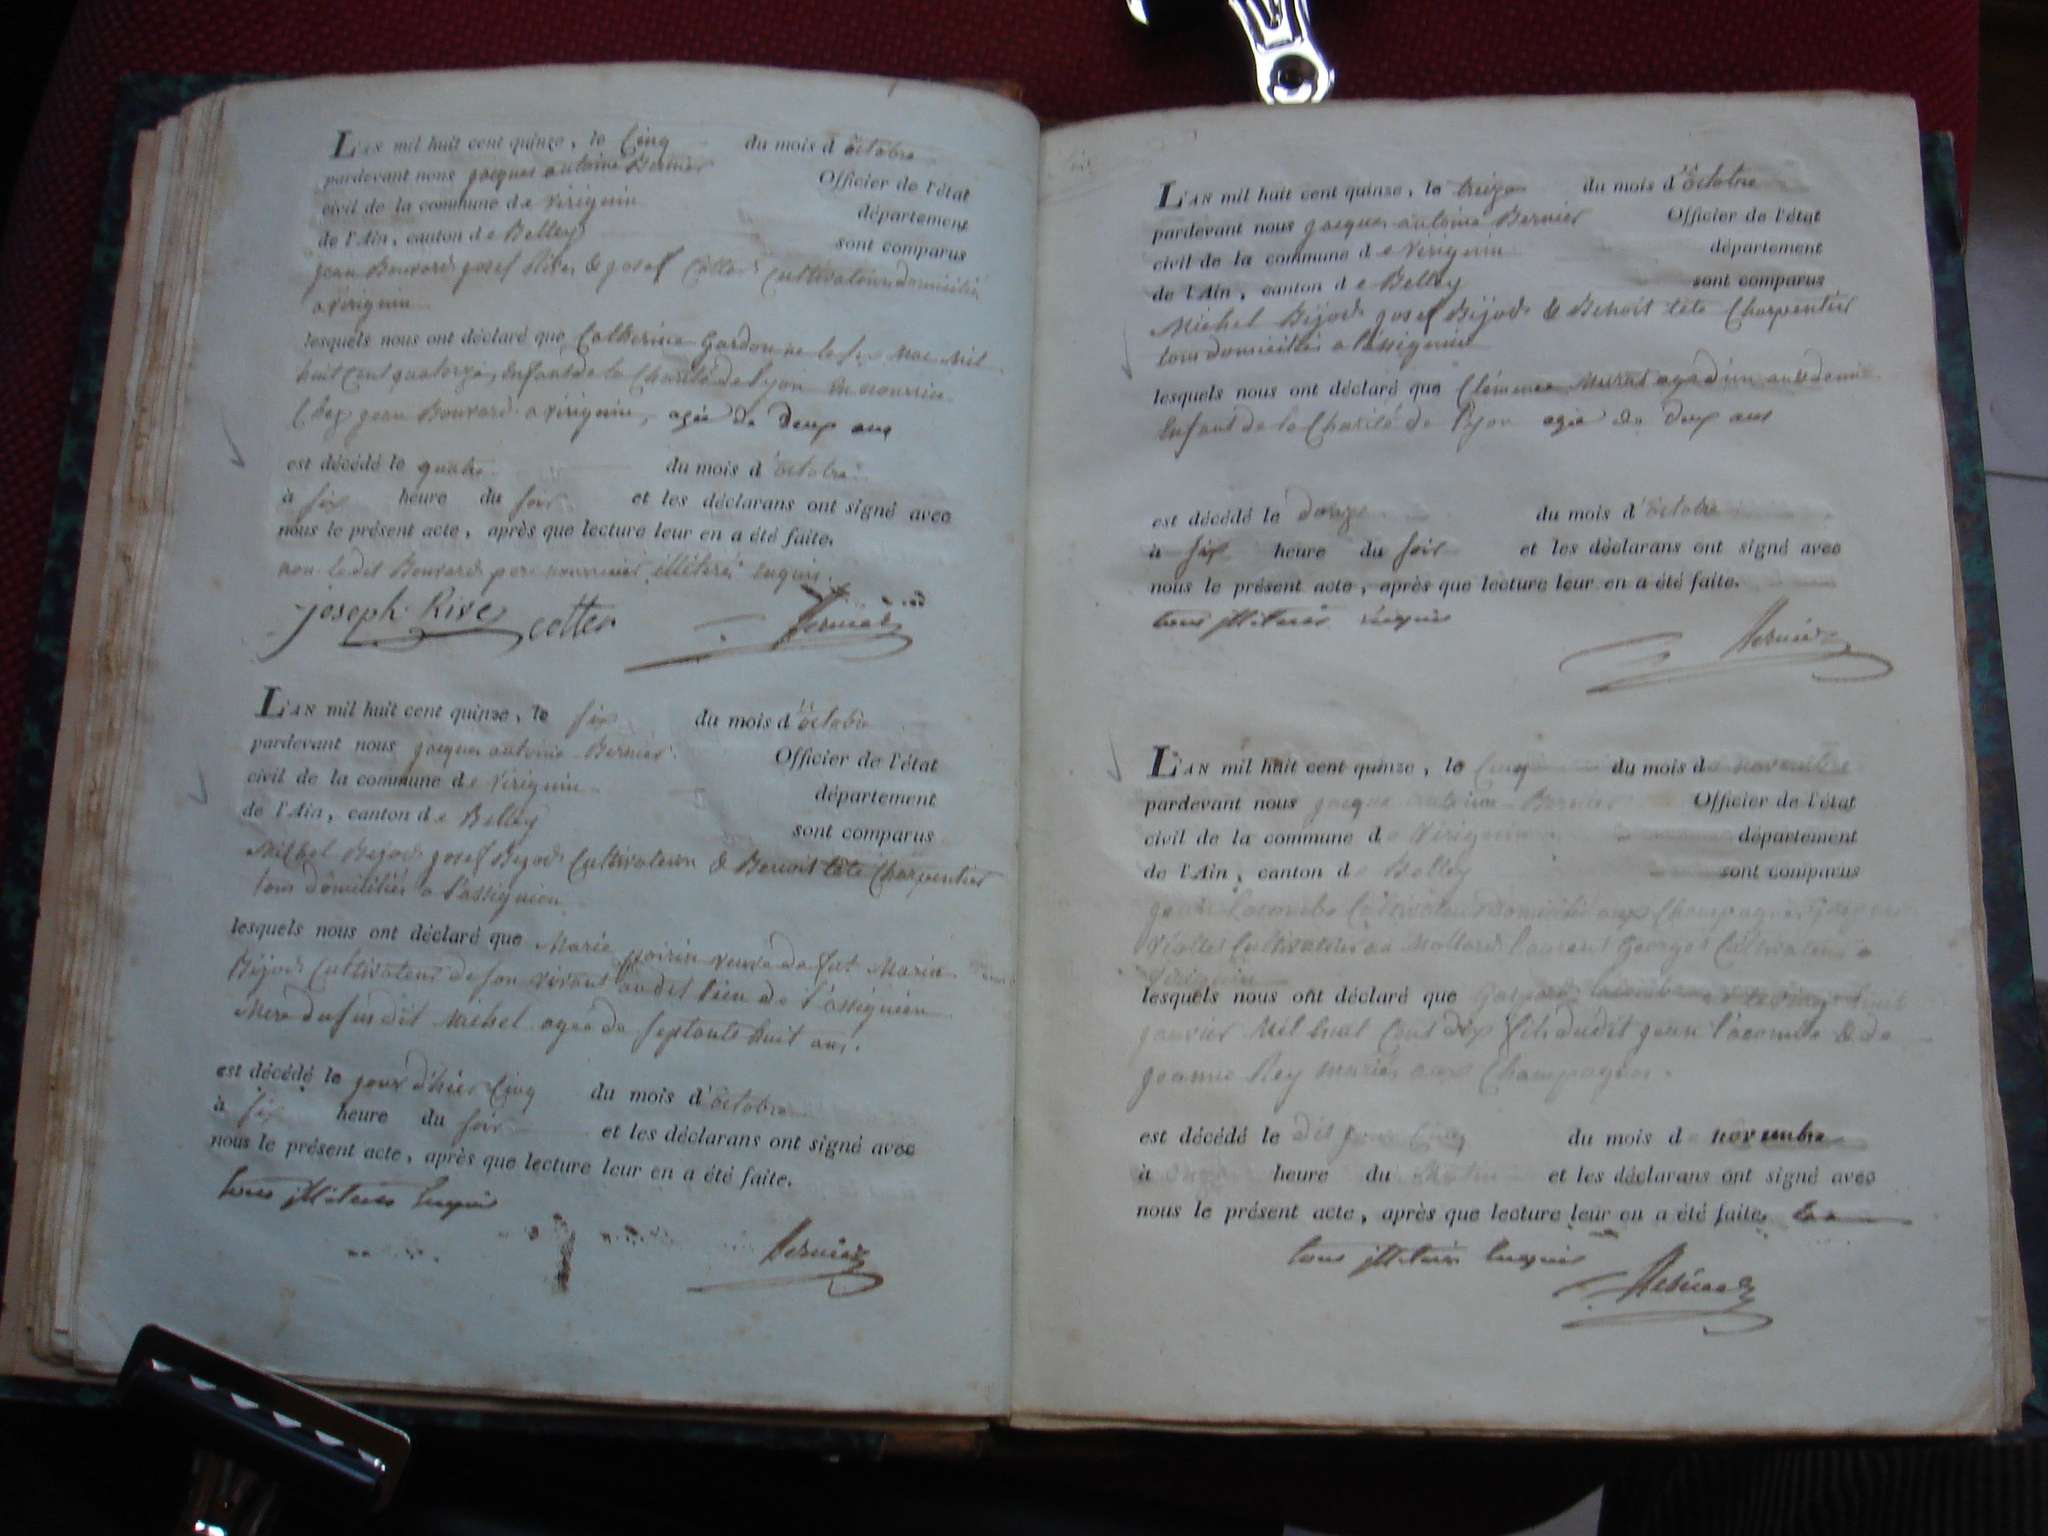 L'AN mil huit cent quinze, le Cinq du mois d'octobre
pardevant nous jacques antoine Bernier Officier de l'état
civil de la commune de Virignin département
de l'Ain, canton de Belley sont comparus
jean Bouvard josef Rive & josef Cultivateurs domiciliés
a virignin
lesquels nous ont déclaré que Catherine née le six Mil
huit Cent quatorze, Enfant de la Charité de Lyon En nourrice
Chez jean Bouvard a virignin, agée de Deux ans
est décédé le quatre du mois d'octobre
à six heure du soir et les déclarans ont signé avec
nous le présent acte, après que lecture leur en a été faite.
non ledit Bouvard pere nourricier illiteré enquis.
joseph Rive cetter Bernier
L'AN mil huit cent quinze, le six du mois d'octobre
pardevant nous jacques antoine Bernier Officier de l'état
civil de la commune de Virignin département
de l'Ain, canton de Belley sont comparus
Michel Bejod josef Bejod Cultivateurs & Benoit tête Charpentier
tous domiciliés a l'assignieu
lesquels nous ont déclaré que Marie veuve de fut Marin
Bijod Cultivateur de son vivant audit lieu de l'assignieu
Mere du susdit Michel agée de septante huit ans.
est décédé le jour d'hier Cinq du mois d'octobre
à six heure du soir et les déclarans ont signé avec
nous le présent acte, après que lecture leur en a été faite.
tous illiterés Enquis
Bernier
L'AN mil huit cent quinze, le treize du mois d'octobre
pardevant nous jacques antoine Bernier Officier de l'état
civil de la commune de Virignin département
de l'Ain, canton de Belley sont comparus
Michel Bijod josef Bijod & Benoit tête Charpentier
tous domiciliés a l'assignieu
lesquels nous ont déclaré que Clémence agée d'un an & demi
Enfant de la Charité de Lyon agée de Deux ans
est décédé le douze du mois d'octobre
à six heure du soir et les déclarans ont signé avec
nous le présent acte, après que lecture leur en a été faite.
tous illiterés enquis
Bernier
L'AN mil huit cent quinze, le Cinq du mois de novembre
pardevant nous jacque antoine Bernier Officier de l'état
civil de la commune de Virignin département
de l'Ain, canton de Belley sont comparus
jean Lacombe Cultivateur domicilié aux Champagnes
Cultivateur au Mollard laurent Georges Cultivateur a
Virignin
lesquels nous ont déclaré que Gaspard lacombe né le vingt huit
janvier Mil huit Cent dix fils dudit jean l'acombe & de
jeanne Rey mariés aux Champagnes.
est décédé le dit jour Cinq du mois de novembre
à heure du Matin et les déclarans ont signé avec
nous le présent acte, après que lecture leur en a été faite.
tous illiterés Enquis
Bernier